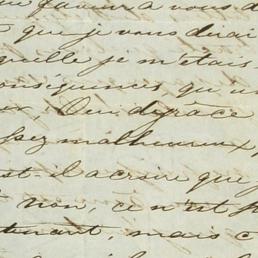 faveur à vous d
que je vous dirai
quelle je m'étais
conséquences qu'un
Deu, disgrâce
ssez malheureux
st-il a croire que
non, ce n'est p
tenant, mais c